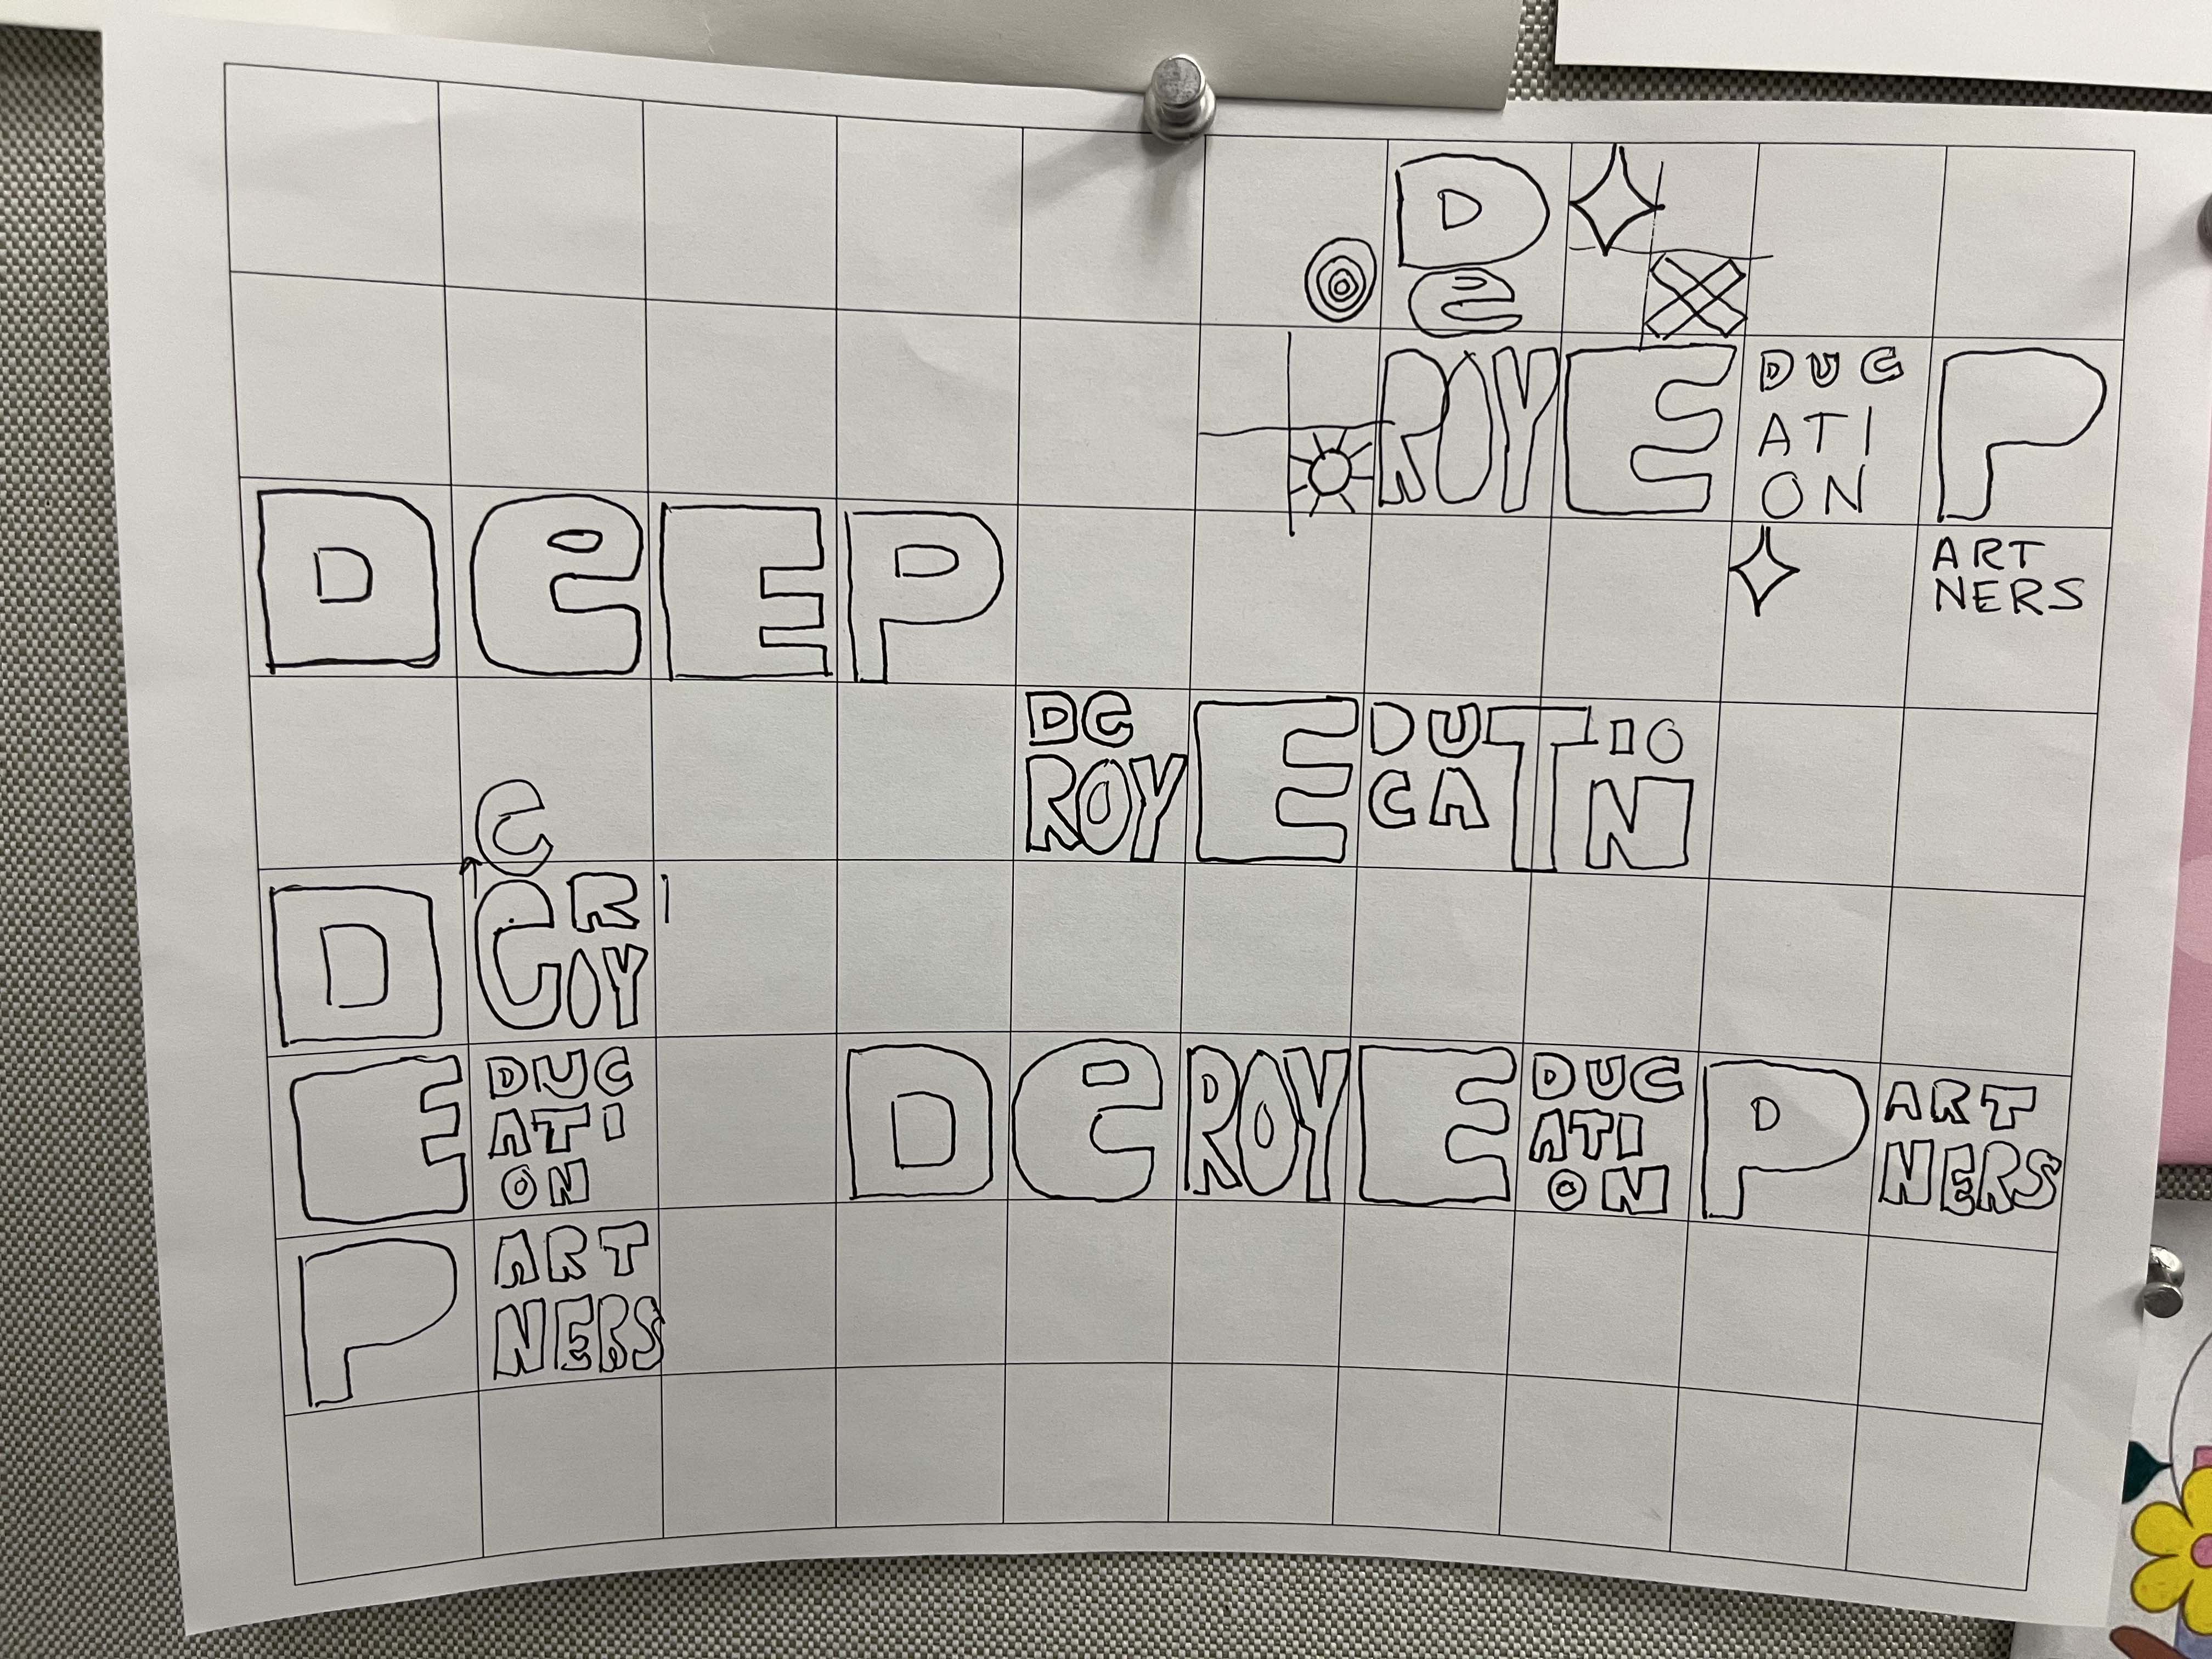 D
e
ROY E DUC P
ATI
ON
DeEP
ART
NERS
De E DU T IO
ROY CA N
e
D e R
OY
E DUC
ATI
ON
De ROY E DUC P ART
ATI NERS
ON
P ART
NERS